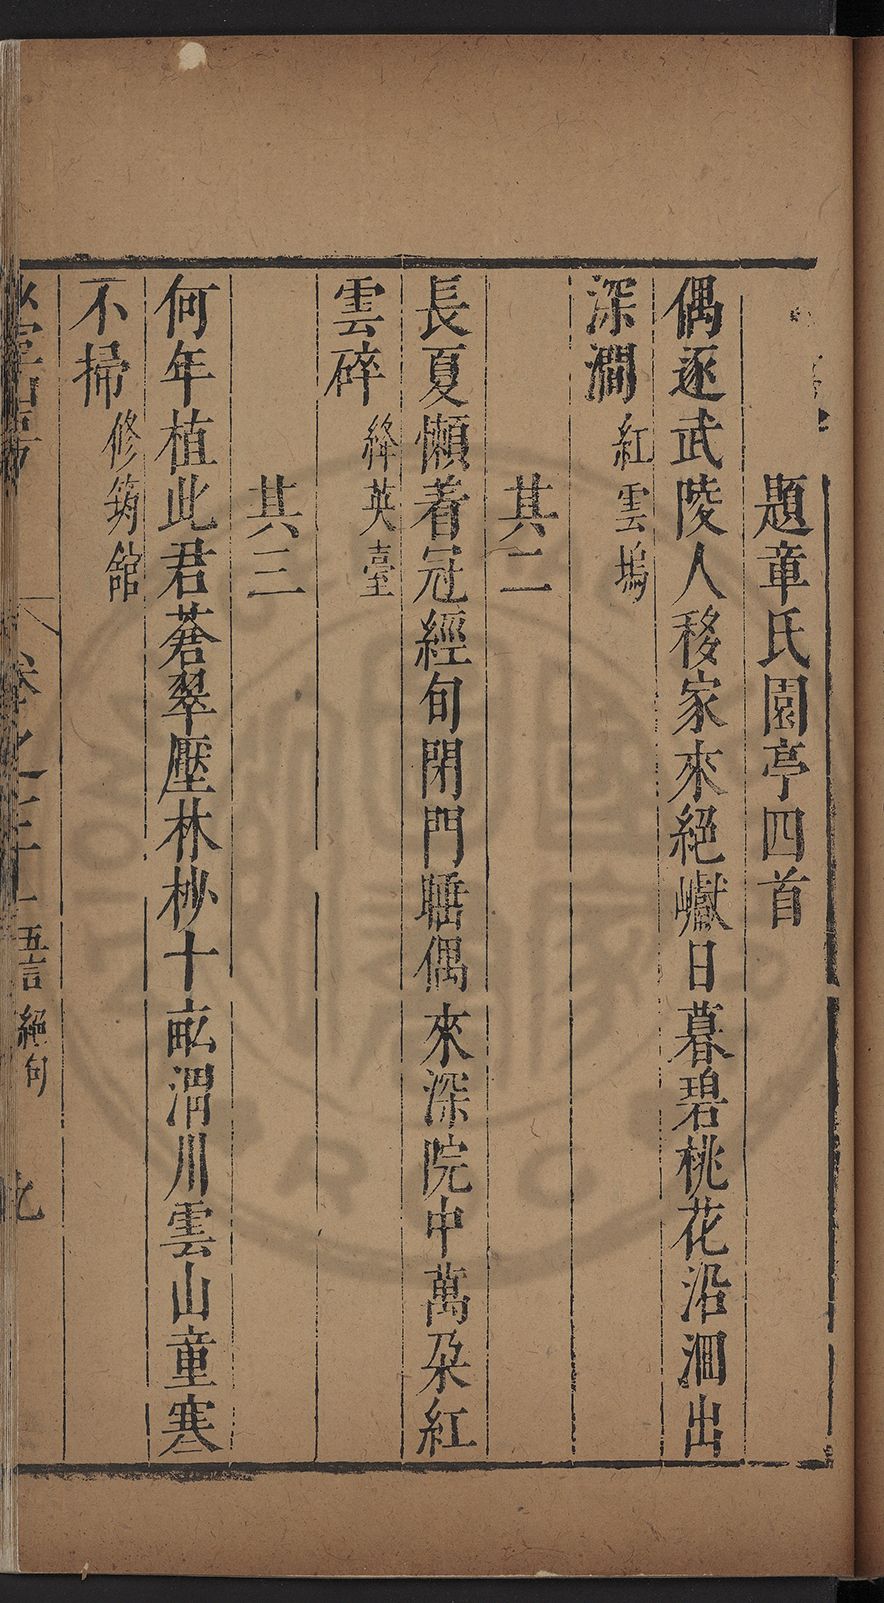 題章氏園亭四首
偶逐武陵人移家來絕巘日暮碧桃花沿洄出
深澗 紅雲塢
其二
長夏懶着冠經旬閉門睡偶來深院中萬朶紅
雲碎 絳英臺
其三
何年植此君蒼翠壓林杪十畝渭川雲山童寒
不掃 修筠館
卷之三 五言絕句